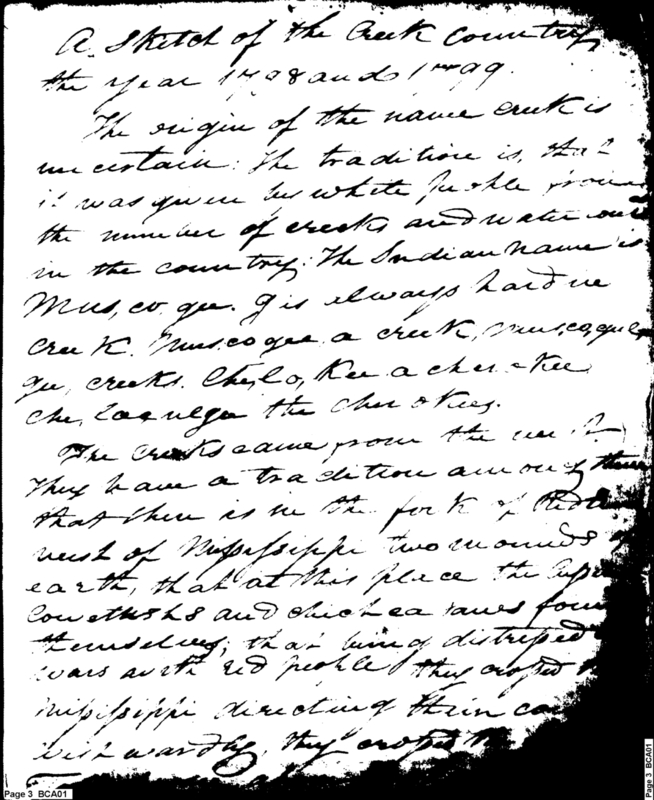 A Sketch of the Creek Country
the year 1798 and 1799.
The origin of the name Creek is
uncertain: The tradition is, that
it was given by white people from
the number of creeks and water
in the country. The Indian name is
Mus,co,gee. G is always hard in
Creek. Muscogee a creek,
gee, creeks. Che,lo,kee a cherokee
che,  the cherokees.
The creeks came from the west
They have a tradition among them
that there is in the fork of Red
west of Mississippi two mounds of
earth, that at this place the
Cowetuhs and chickasaws
themselves; that being distressed
wars with red people they crossed
Mississippi directing their
wardly, they crossed
Page 3 BCA01
Page 3 BCA01